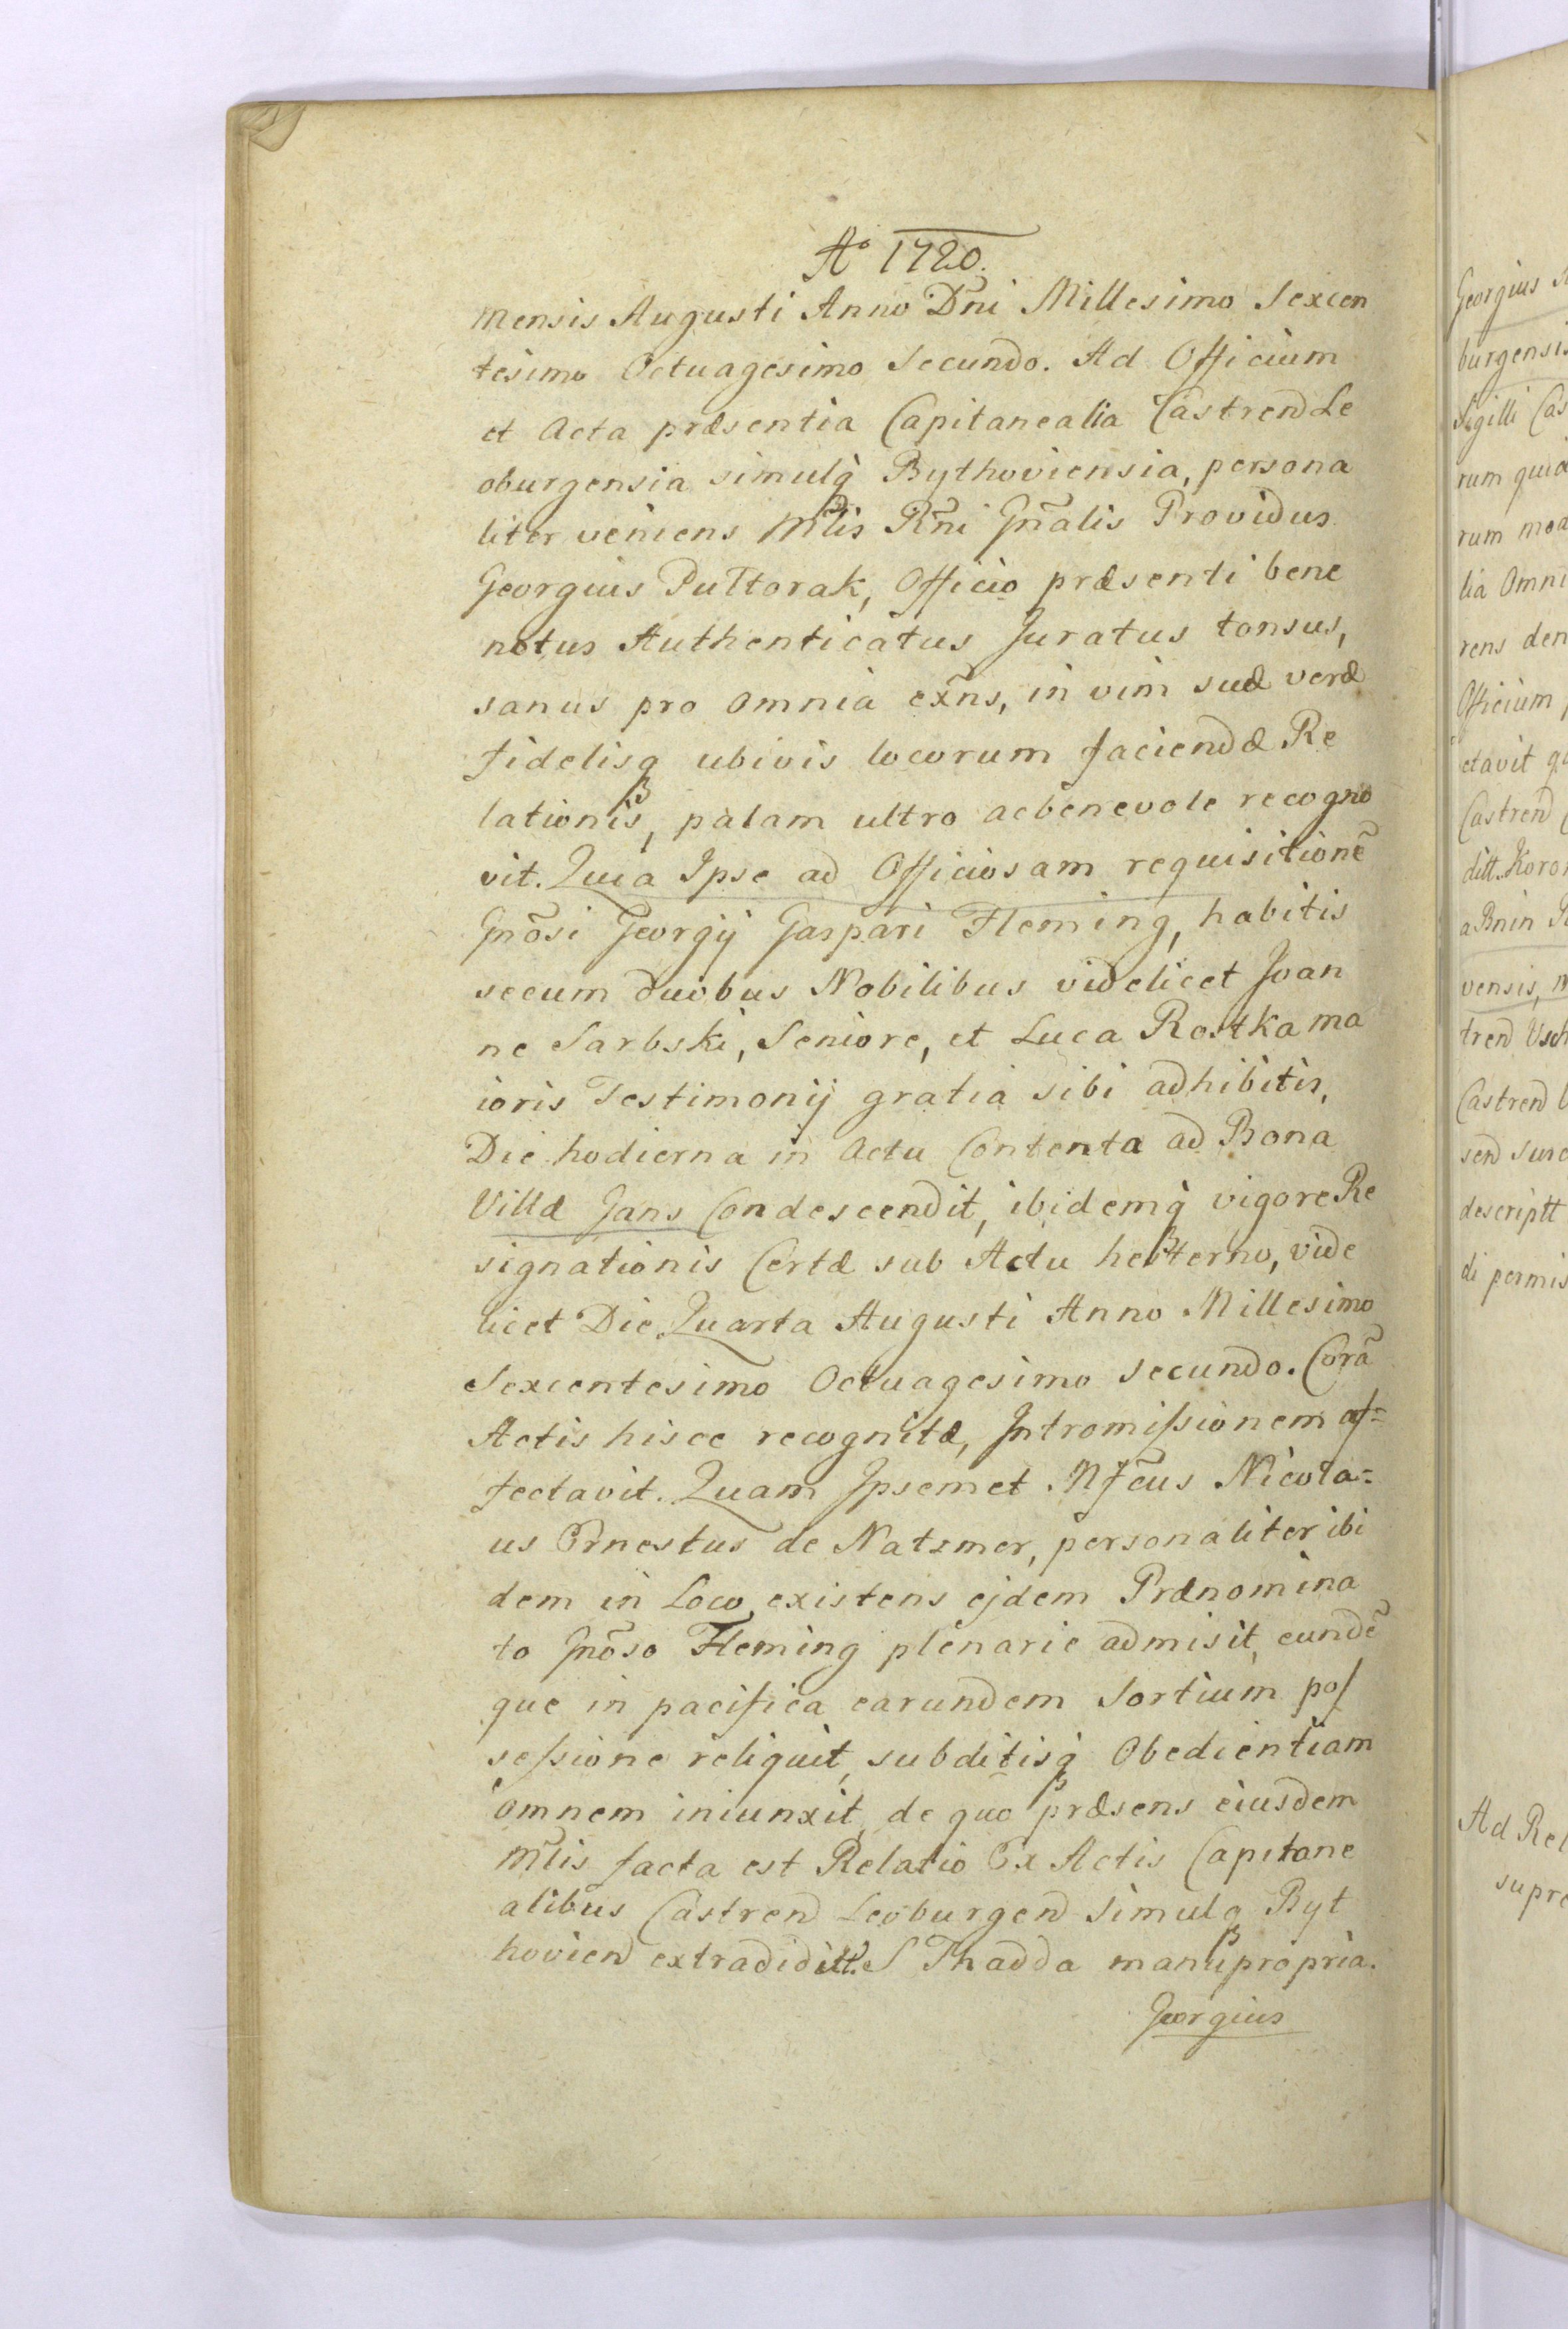 Aº 1720.
mensis Augusti Anno Dñi Millesimo Sexcen
tesimo Octuagesimo Secundo. Ad Officium
et Acta præsentia Capitanealia Castrend Le
oburgensia simulq̀ Bythoviensia, persona
liter veniens Mlis Rñi Gñalis Providus
Georgius Puttorak, Officio præsenti bene
notus Authenticatus Juratus tonsus,
sanus pro omnia ex̃ns, in vim suæ veræ
fidelisq ubivis locorum faciendæ Re
lationis, palam ultro acbenevole recogno
vit. Quia Ipse ad Officiosam requisitionẽ
Gnõsi Georgij Gaspari Fleming, habitis
secum duobus Nobilibus videlicet Joan
ne Sarbski, Seniore, et Luca Rostka ma
ioris Testimonij gratia sibi adhibitis,
Die hodierna in Actu Contenta ad Bona
Villæ Gans Condescendit, ibidemq̀ vigore Re
signationis Certæ sub Actu hesterno, vide
licet Die Quarta Augusti Anno Millesimo
Sexcentesimo Octuagesimo secundo. Corã
Actis hisce recognitæ, Intromissionem af=
fectavit. Quam Ipsemet Mfcus Nicola=
us Ernestus de Natzmer, personaliter ibi
dem in Loco existens ejdem Prænomina
to Gnõso Fleming plenarie admisit, eundẽ
que in pacifica earundem Sortium pos
sessione reliquit, subditisq̀ Obedientiam
omnem iniunxit, de quo præsens eiusdem
Mlis facta est Relatio Ex Actis Capitane
alibus Castrend Leoburgend simulq Byt
hoviend extradiditt. S Thadda manupropria.
Georgius
Georgius
burgensis
Sigilli Cas
rum quid
rum mod
lia Omni
rens den
Officium
ctavit
Castrend
ditt. Koron
a Bnin
vensis,
trend Usch
Castrend
send Surc
descriptt
di permis
Ad Rel
supra